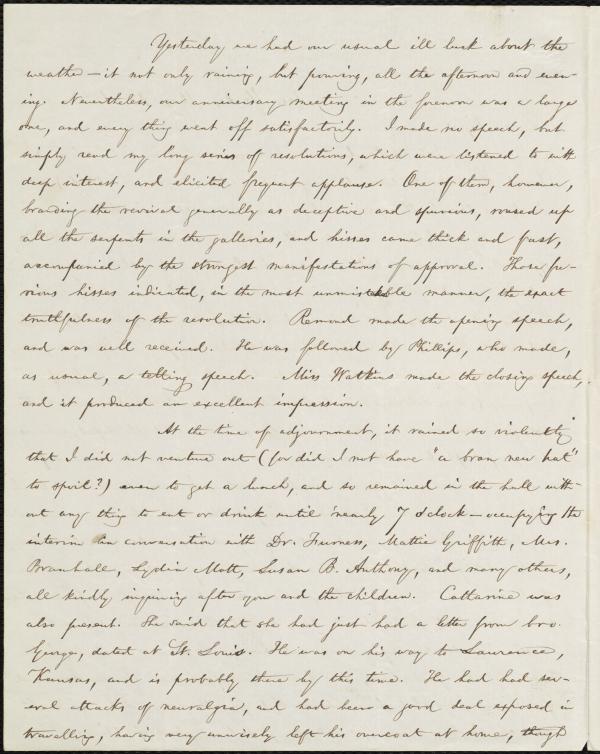 Yesterday we had our usual ill luck about the
weather — it not only raining, but pouring, all the afternoon and even-
ing. Nevertheless, our anniversary meeting in the forenoon was a large
one, and every thing went off satisfactorily. I made no speech, but
simply read my long series of resolutions, which were listened to with
deep interest, and elicited frequent applause. One of them, however,
branding the revival generally as deceptive and spurious, roused up
all the serpents in the galleries, and hisses came thick and fast,
accompanied by the strongest manifestations of approval. Those fu-
rious hisses indicated, in the most unmistakable manner, the exact
truthfulness of the resolution. Remond made the opening speech,
and was well received. He was followed by Phillips, who made,
as usual, a telling speech. Miss Watkins made the closing speech,
and it produced an excellent impression.
At the time of adjournment, it rained so violently
that I did not venture out (for did I not have "a bran new hat"
to spoil?) even to get a lunch, and so remained in the hall with-
out any thing to eat or drink until nearly 7 o'clock — occupying the
interim in conversation with Dr. Furness, Mattie Griffith, Mrs.
Bramhall, Lydia Mott, Susan B. Anthony, and many others,
all kindly inquiring after you and the children. Catharine was
also present. She said that she had just had a letter from bro.
George, dated at St. Louis. He was on his way to Lawrence,
Kansas, and is probably there by this time. He had had sev-
eral attacks of neuralgia, and had been a good deal exposed in
travelling, having very unwisely left his overcoat at home, though